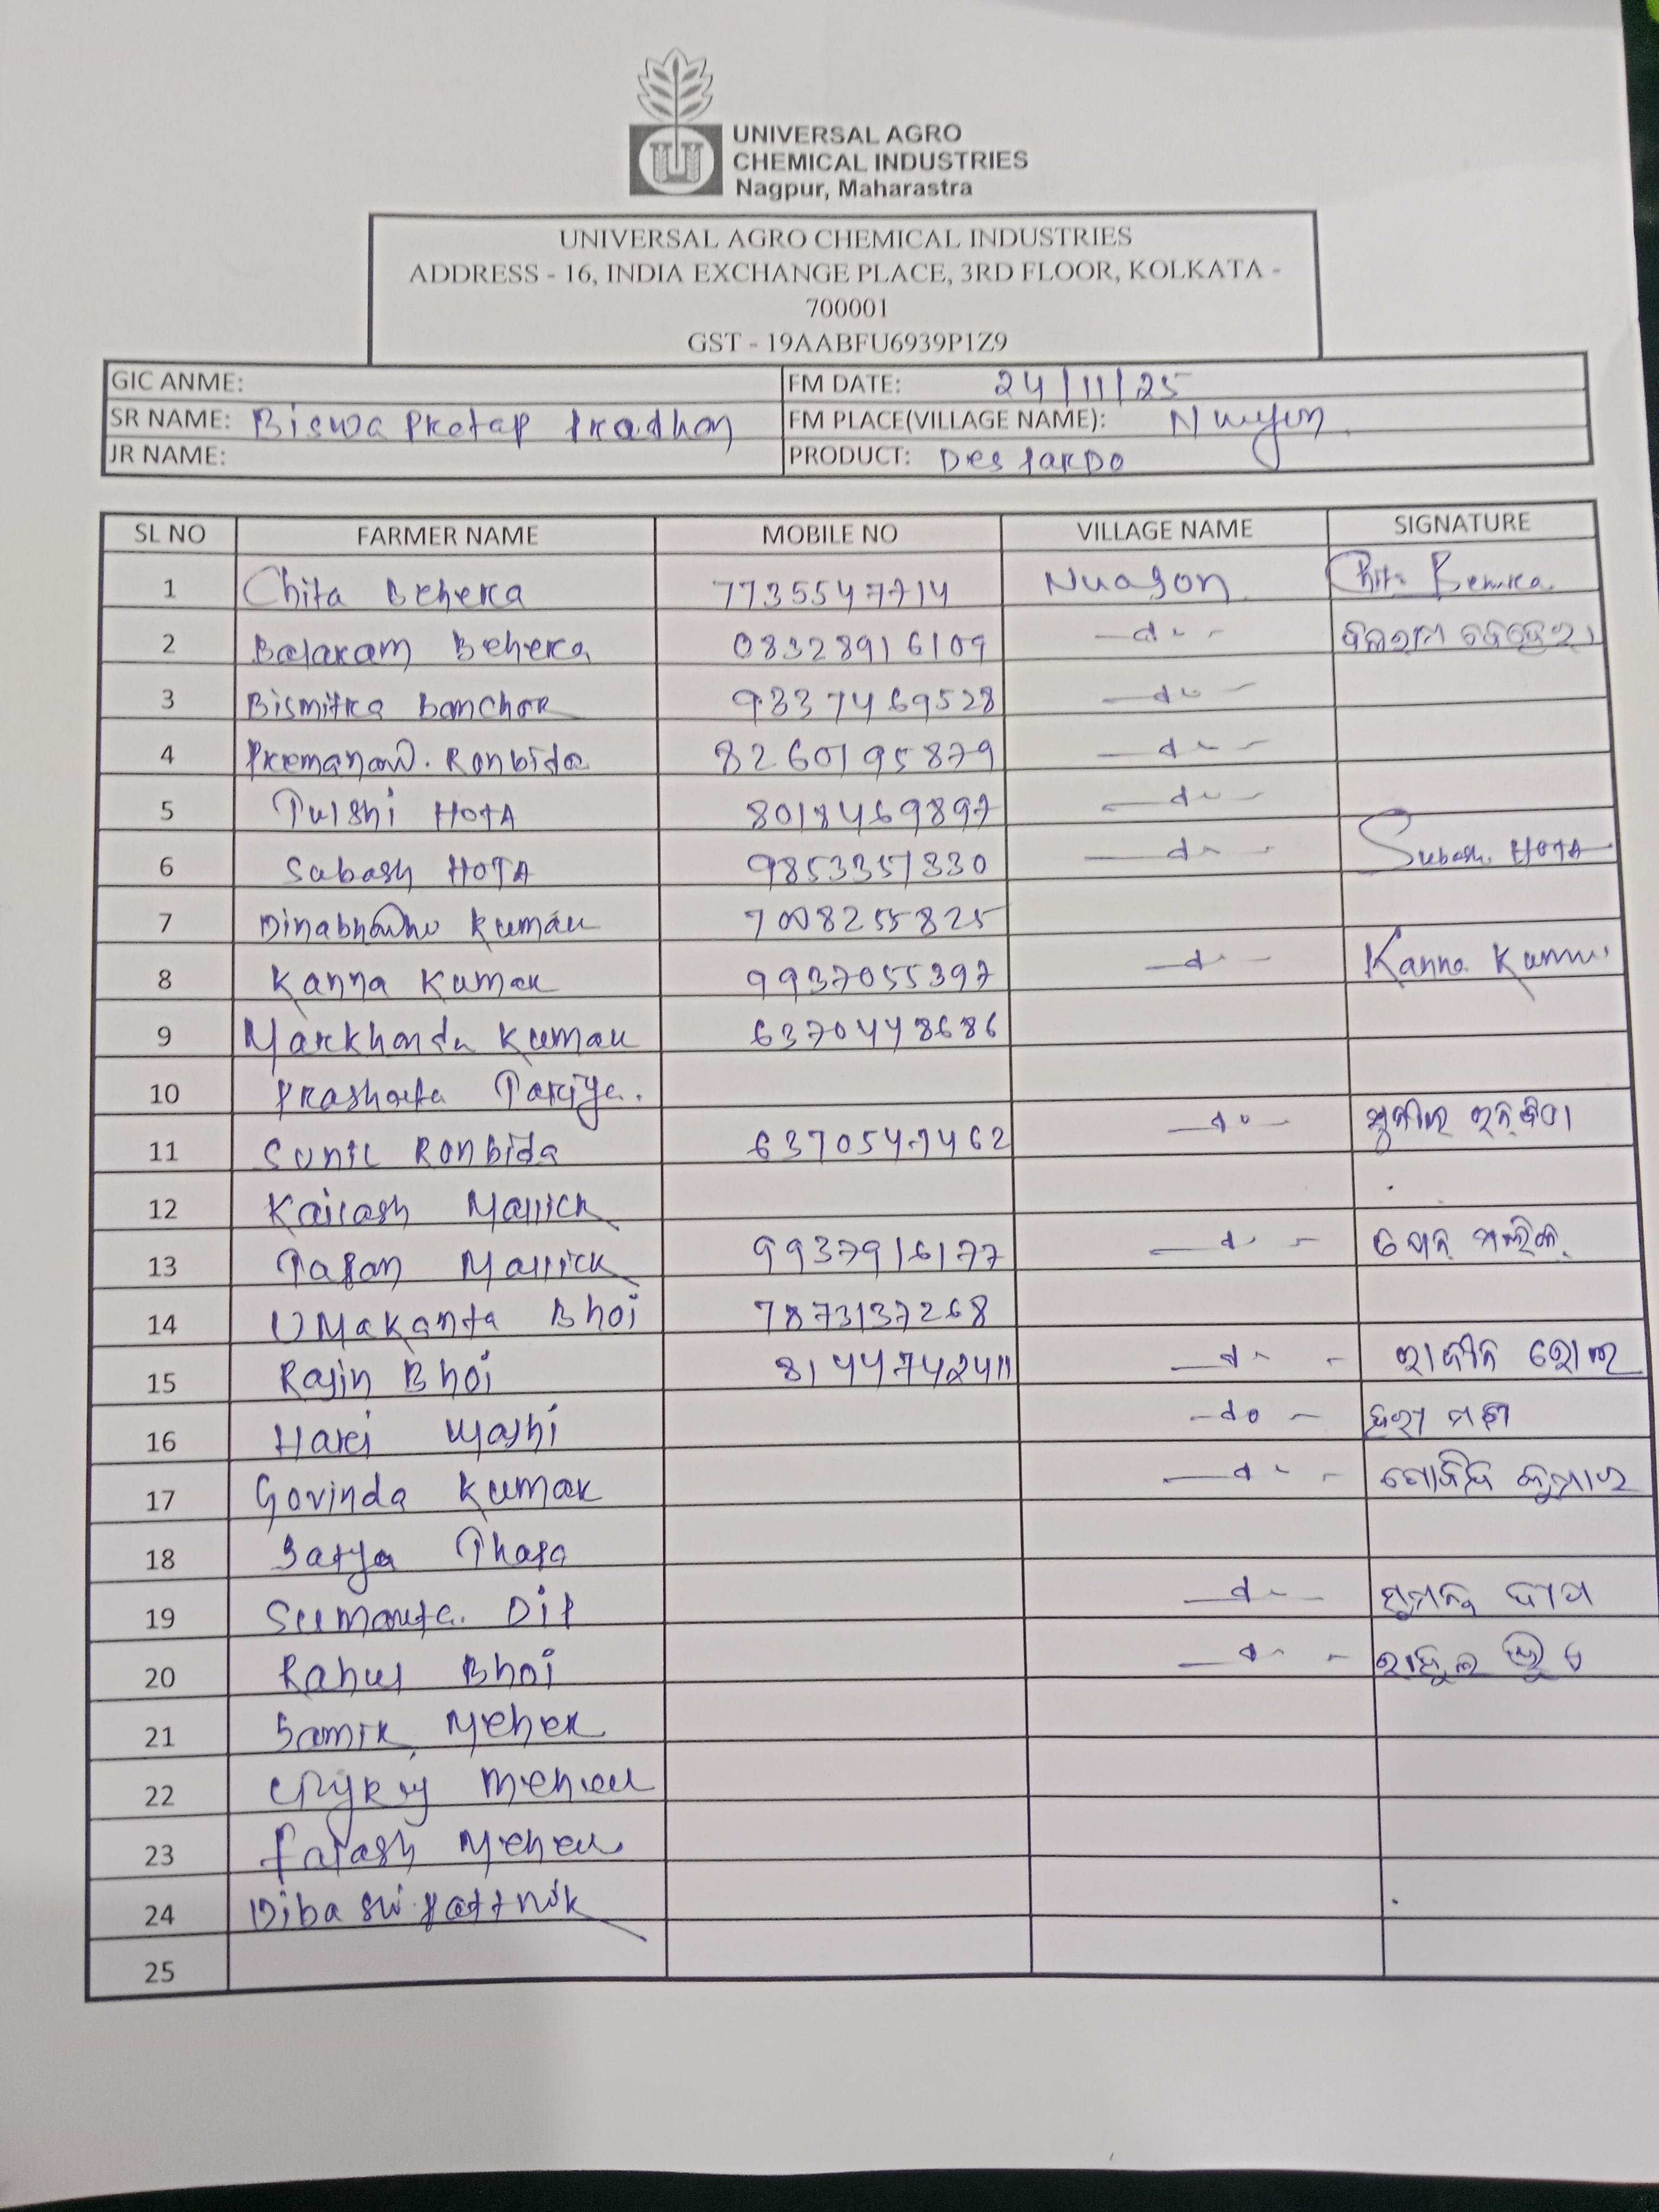 UNIVERSAL AGRO
CHEMICAL INDUSTRIES
Nagpur, Maharastra
UNIVERSAL AGRO CHEMICAL INDUSTRIES
ADDRESS - 16, INDIA EXCHANGE PLACE, 3RD FLOOR, KOLKATA -
700001
GST - 19AABFU6939P1Z9
GIC ANME: FM DATE: 24/11/25
SR NAME: Biswa Pratap Pradhan FM PLACE(VILLAGE NAME):
JR NAME: PRODUCT:
SL NO FARMER NAME MOBILE NO VILLAGE NAME SIGNATURE
1 Chita Behera 7735547714 Nuagon Chita Behera
2 Balaram Behera 08328916109 —do— ବଳରାମ ବେହେରା
3 Bismitra Banchor 9337469528 —do—
4 Premanand. Ronbida 8260195879 —do—
5 Tulshi HOTA 8018469897 —do—
6 Sabash HOTA 9853351330 —do— Subash HOTA
7 Dinabandhu Kumar 7008255825
8 Kanna Kumar 9937055397 —do— Kanna Kumar
9 Markhanda Kumar 6370448686
10 Prashanta
11 Sunil Ronbida 6370547462 —do— ସୁନୀଲ ରନ୍‌ବିଡା
12 Kailash Mallick
13 Tapan Mallick 9937916177 —do— ତପନ୍ ମଲିକ
14 UMakanta Bhoi 7873137268
15 Rajin Bhoi 8144742411 —do— ରାଜୀନ ଭୋଇ
16 Hari Majhi —do— ହରୀ ମଝୀ
17 Govinda Kumar —do— ଗୋବିନ୍ଦ କୁମାର
18 Satya Thapa
19 Sumanta. Dip —do— ସୁମନ୍ତ ଦୀପ
20 Rahul Bhoi —do— ରାହୁଲ
21 Samir Meher
22 Meher
23 Palash Meher
24 Dibasri pattnik
25